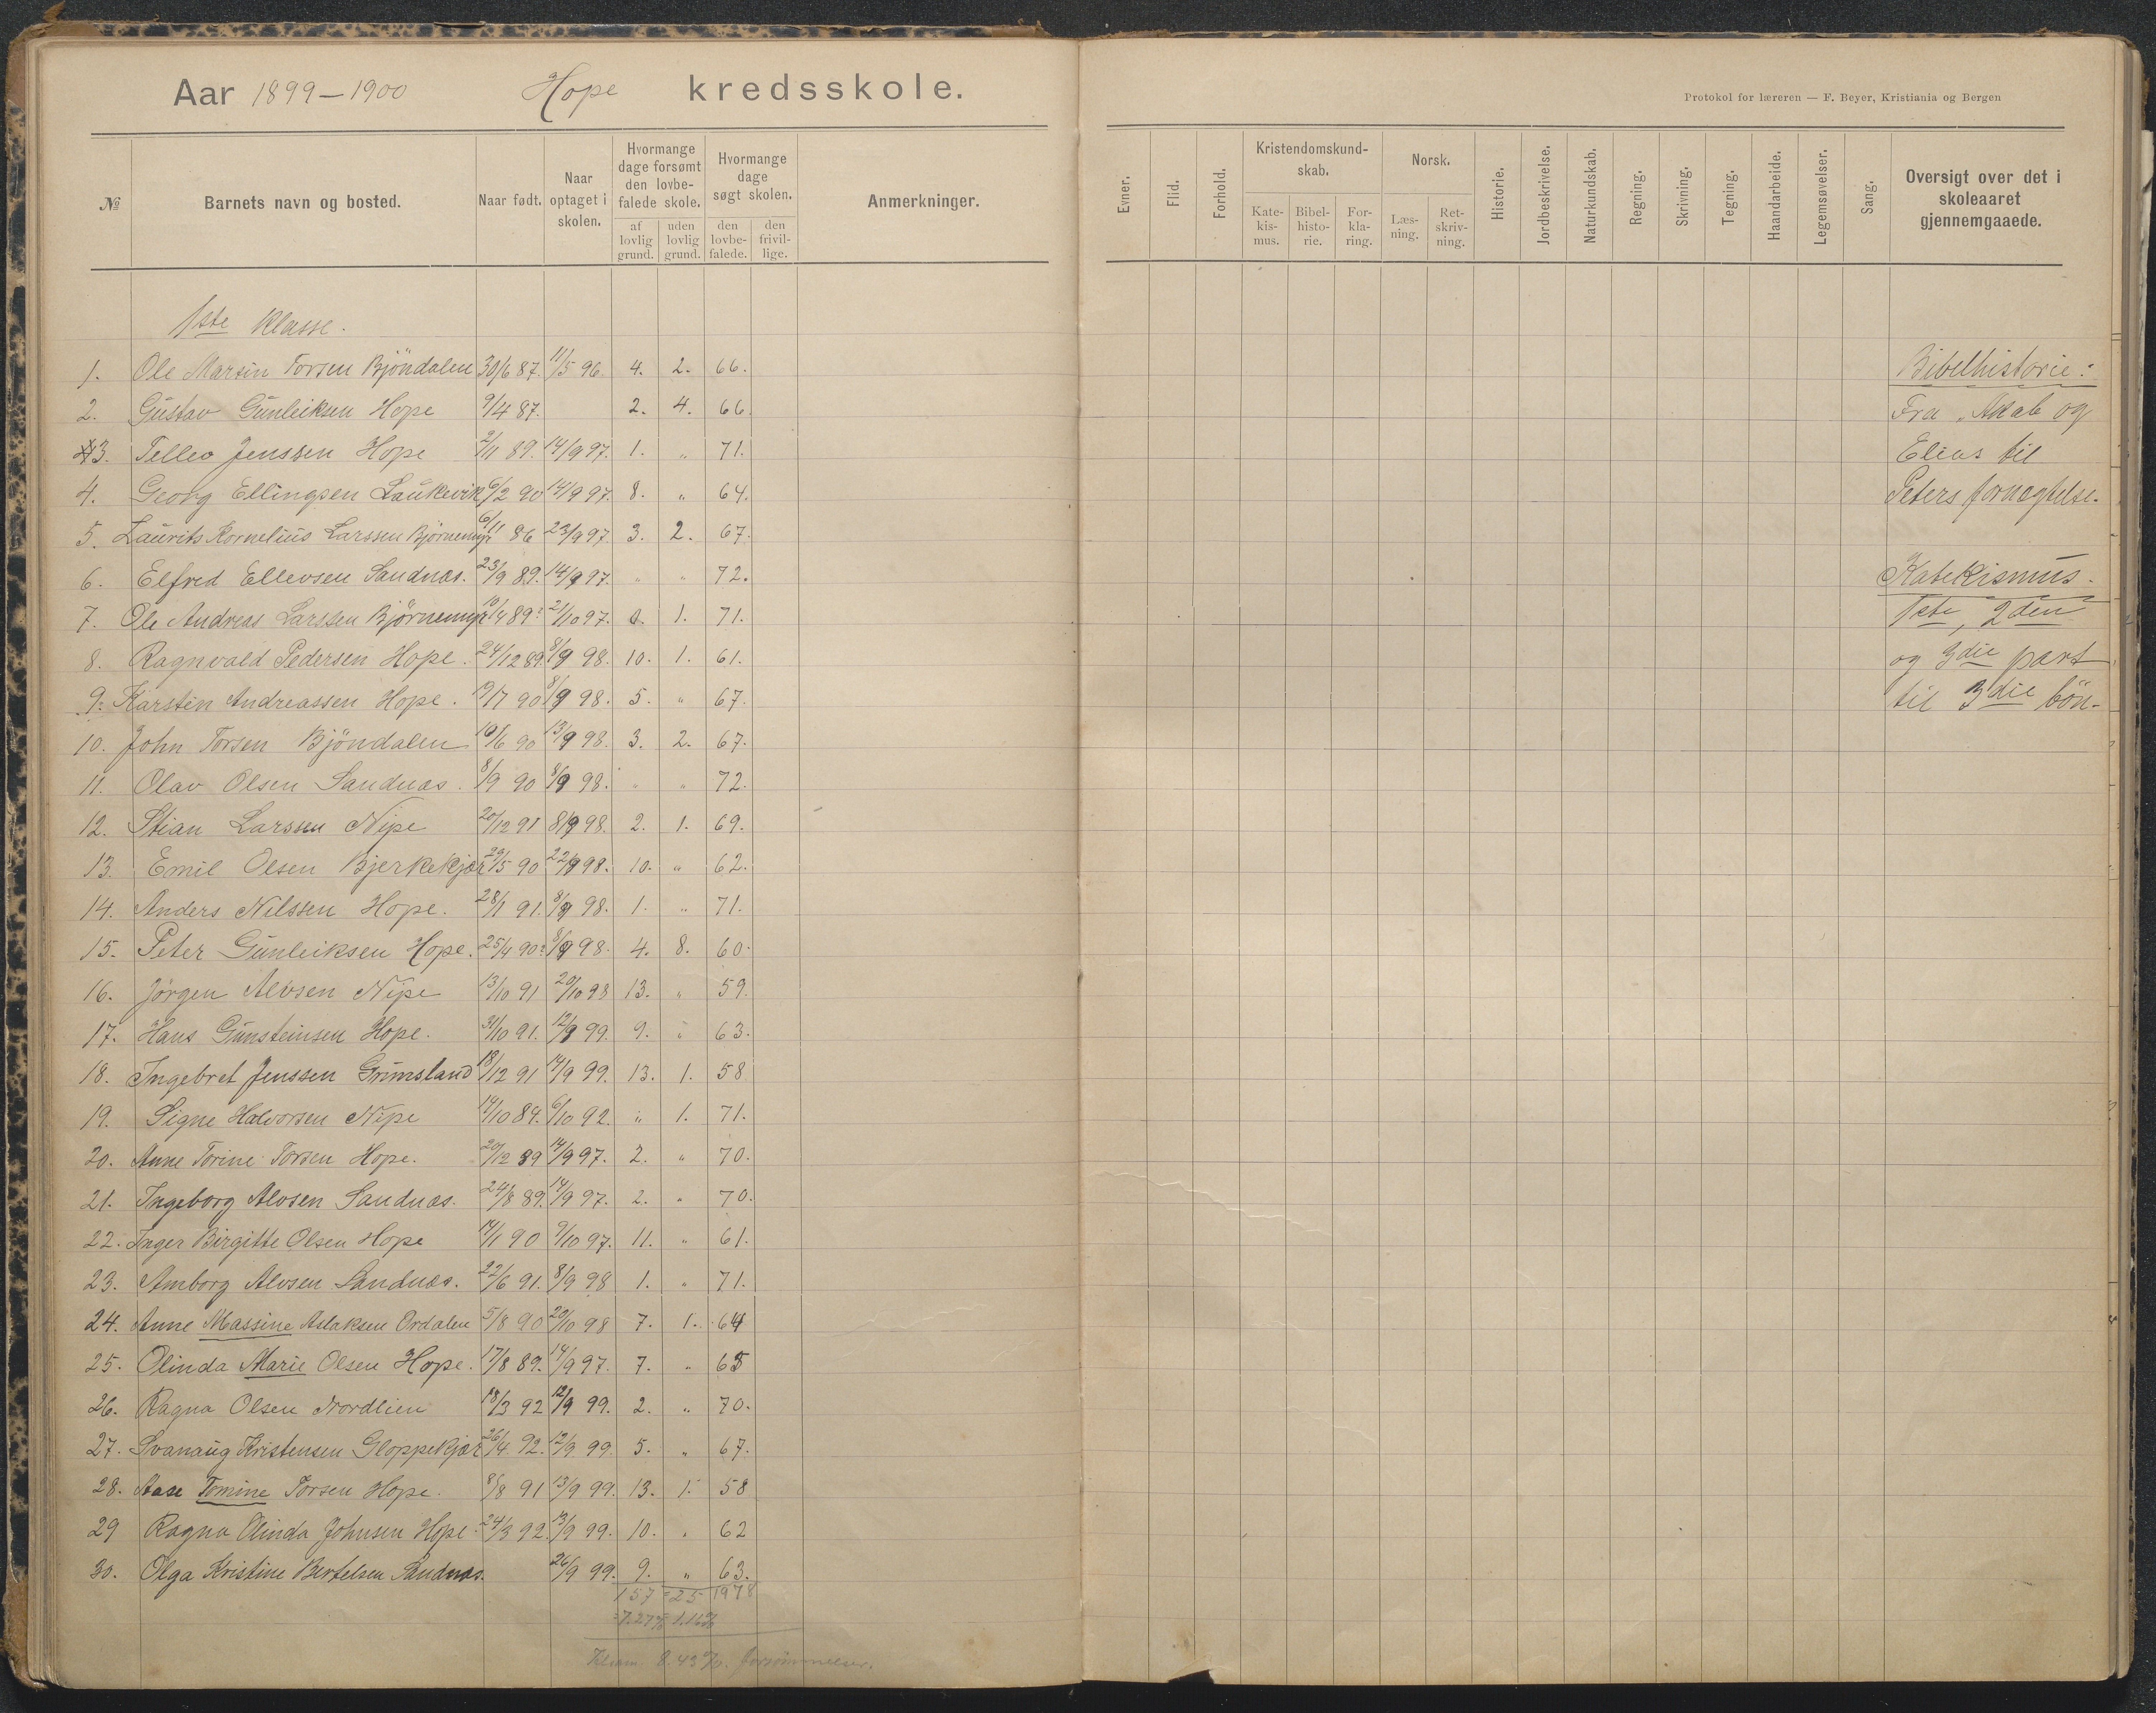 Aar 1899-1900 Hope kredsskole.
Protokol for læreren — F. Beyer, Kristiania og Bergen
№ Barnets navn og bosted. Naar født. Naar optaget i skolen. Hvormange dage forsømt den lovbefalede skole. af lovlig grund. uden lovlig grund. Hvormange dage søgt skolen. den lovbefalede. den frivillige. Anmerkninger.
Evner. Flid. Forhold. Kristendomskundskab. Katekismus. Bibelhistorie. Forklaring. Norsk. Læsning. Retskrivning. Historie. Jordbeskrivelse. Naturkundskab. Regning. Skrivning. Tegning. Haandarbeide. Legemsøvelser. Sang. Oversigt over det i skoleaaret gjennemgaaede.
1ste Klasse.
1. Ole Martin Torsen Bjöndalen 30/6 87. 11/5 96. 4. 2. 66.
2. Gustav Gunleiksen Hope 9/4 87. 2. 4. 66.
3. Tellev Jenssen Hope 2/11 89. 14/9 97. 1. " 71.
4. Georg Ellingsen Laukevik 6/2 90 14/9 97. 8. " 64.
5. Laurits Kornelius Larssen Bjørnemyr 6/11 86 23/9 97. 3. 2. 67.
6. Elfred Ellevsen Sandnæs. 23/9 89. 14/9 97. " " 72.
7. Ole Andreas Larssen Bjørnemyr 10/4 89. 21/10 97. 1. 71.
8. Ragnvald Pedersen Hope. 24/12 89. 8/9 98. 10. 1. 61.
9. Karsten Andreassen Hope. 19/7 90 8/9 98. 5. " 67.
10. John Torsen Bjöndalen 10/6 90 13/9 98. 3. 2. 67.
11. Olav Olsen Sandnæs. 8/9 90 8/9 98. " " 72.
12. Stian Larssen Nipe 20/12 91 8/9 98. 2. 1. 69.
13. Emil Olsen Bjerkekjær 29/5 90 22/9 98. 10. " 62.
14. Anders Nilssen Hope. 28/1 91. 8/9 98. 1. " 71.
15. Peter Gunleiksen Hope. 25/4 90. 8/9 98. 4. 8. 60.
16. Jørgen Alvsen Nipe 13/10 91 20/10 98 13. " 59.
17. Hans Gunsteinsen Hope. 31/10 91. 12/9 99. 9. " 63.
18. Ingebret Jenssen Grimsland 18/12 91 14/9 99. 13. 1. 58
19. Signe Halvorsen Nipe 14/10 84. 6/10 92. " 1. 71.
20. Anne Torine Torsen Hope. 20/12 89 14/9 97. 2. " 70.
21. Ingeborg Alvsen Sandnæs. 24/8 89. 14/9 97. 2. " 70.
22. Inger Birgitte Olsen Hope 14/1 90 9/10 97. 11. " 61.
23. Amborg Alvsen Sandnæs. 22/6 91. 8/9 98 1. " 71.
24. Anne Massine Aslaksen Ordalen 5/8 90 20/10 98 7. 1. 64
25. Olinda Marie Olsen Hope. 17/8 89. 14/9 97. 7. " 65
26. Ragna Olsen Nordlien 18/3 92 12/9 99. 2. " 70.
27. Svanaug Kristensen Gloppekjær 26/4 92. 12/9 99. 5. " 67.
28. Aase Tomine Torsen Hope. 8/8 91 13/9 99. 13. 1. 58
29 Ragna Olinda Johnsen Hope. 24/3 92. 13/9 99. 10. " 62
30. Olga Kristine Bertelsen Sandnæs. 26/9 99. 9. " 63.
157 = 25 1978
= 7.27% 1.16%
8.43%. forsømmelser.
Bibelhistorie:
Fra Akab og
Elias til
Peters fornægtelse.
Katekismus.
1ste, 2den
og 3die part
til 3die bön.